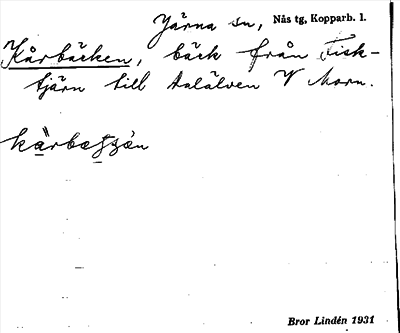 Järna sn, Nås tg, Kopparb. l.
Kårbäcken, bäck från Fisk-
tjärn till Dalälven V Morn.
Bror Lindén 1931